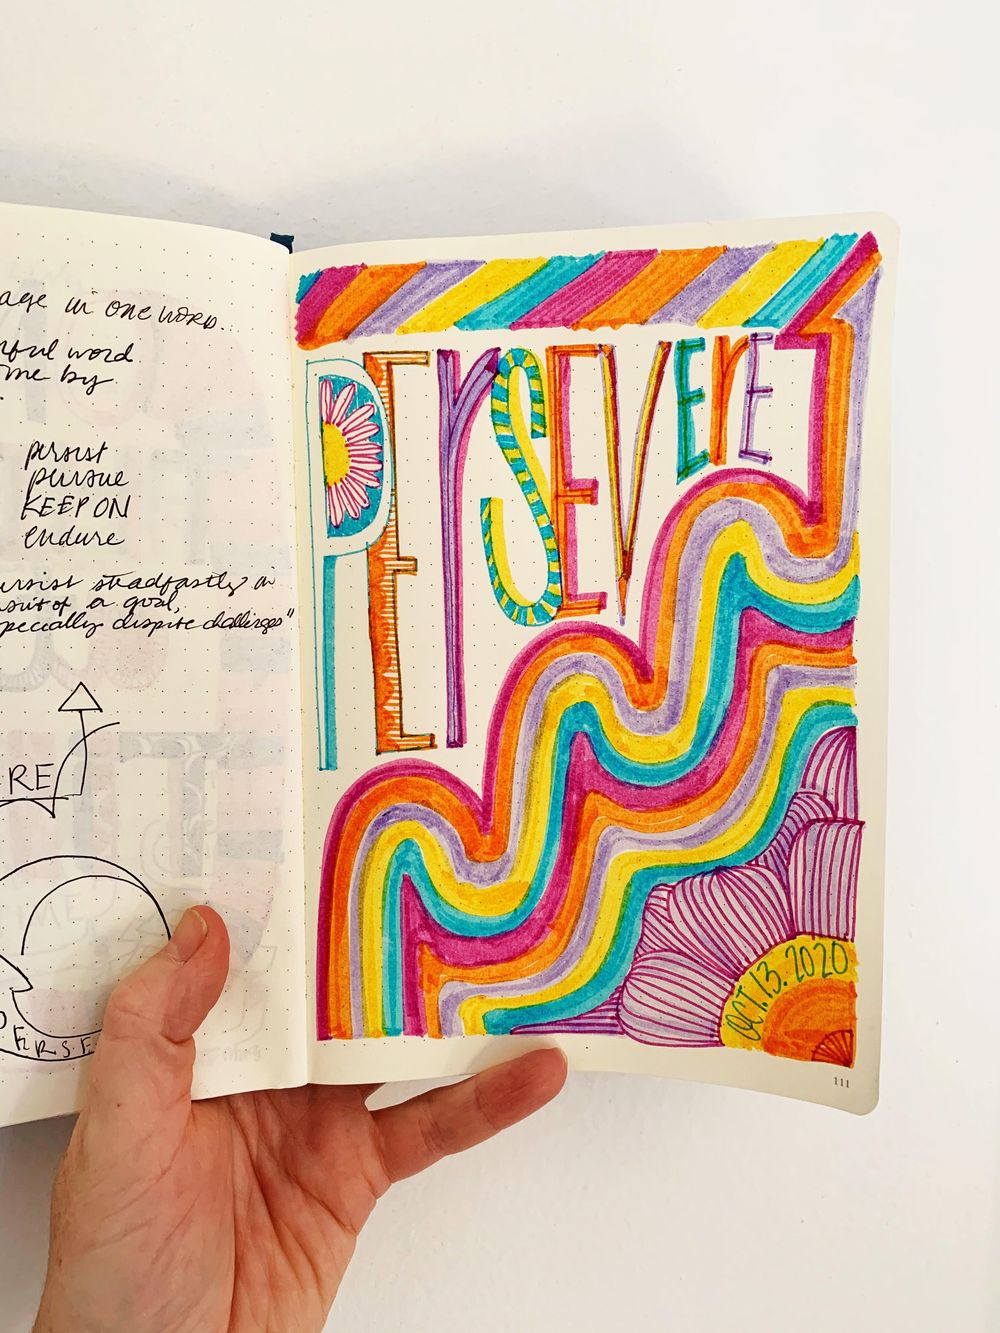 age in one word...
ful word
me by
persist
pursue
KEEP ON
endure
ersist steadfastly in
suit of a goal,
specially dispite challenges"
RE
PERSE
PERSEVERE
OCT.13.2020
111